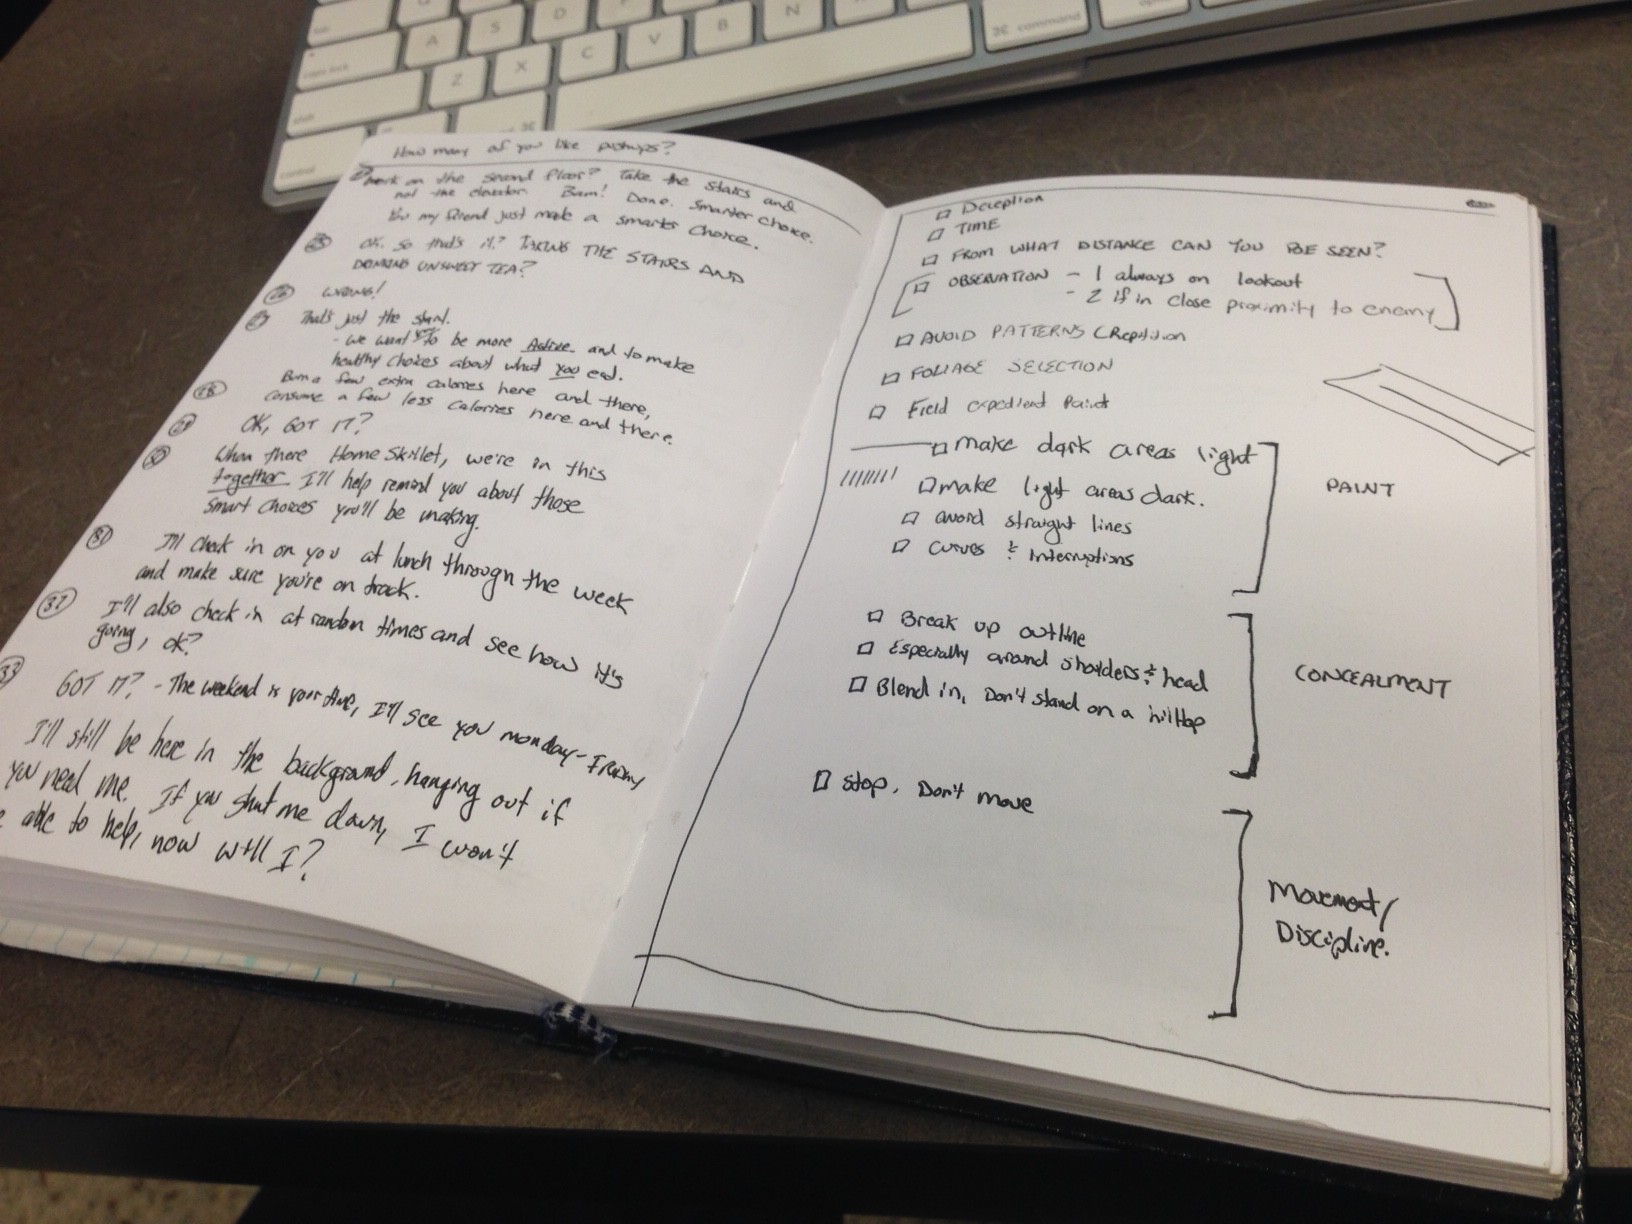 A
S
D
Z
X
C
V
B
N
command
control
How many of you like pushups?
work on the second floor? Take the stairs and
not the elevator. Bam! Done. Smarter choice.
You my friend just made a smarter choice.
25 OK. So that's it? TAKING THE STAIRS AND
DRINKING UNSWEET TEA?
26 WRONG!
27 That's just the start.
- we want you to be more Active and to make
healthy choices about what you eat.
28 Burn a few extra calories here and there,
consume a few less calories here and there.
29 OK, GOT IT?
30 Whoa there Home Skillet, we're in this
together. I'll help remind you about those
smart choices you'll be making.
31 I'll check in on you at lunch through the week
and make sure you're on track.
32 I'll also check in at random times and see how it's
going, OK?
33 GOT IT? - The weekend is your time, I'll see you monday-Friday
I'll still be here in the background, hanging out if
you need me. If you shut me down, I won't
able to help, now will I?
Deception
TIME
FROM WHAT DISTANCE CAN YOU BE SEEN?
OBSERVATION - 1 always on lookout
- 2 if in close proximity to enemy
AVOID PATTERNS (Repitition
FOLIAGE SELECTION
Field expedient Paint
make dark areas light
make light areas dark.
avoid straight lines
curves & interruptions
PAINT
Break up outline
Especially around shoulders & head
Blend in, Don't stand on a hilltop
CONCEALMENT
Stop, Don't move
Movement/
Discipline.